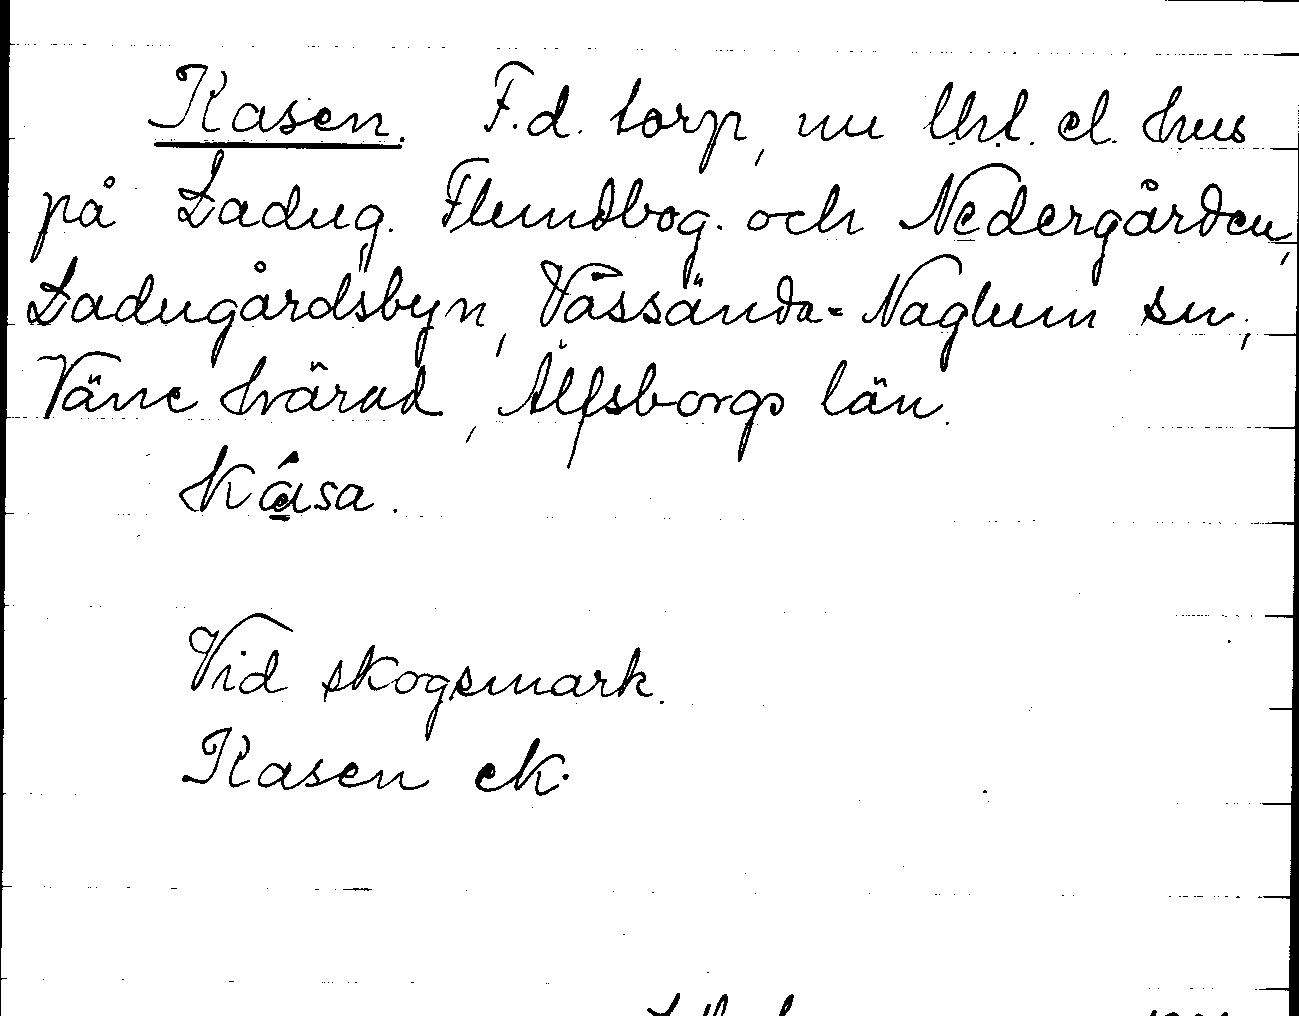 Kasen. F.d. torp, nu lht. el. hus
på Ladug. Flundbog. och Nedergården,
Ladugårdsbyn, Vassända-Naglum sn,
Väne härad, Älfsborgs län.
Kása.
Vid skogsmark.
Kasen ek.